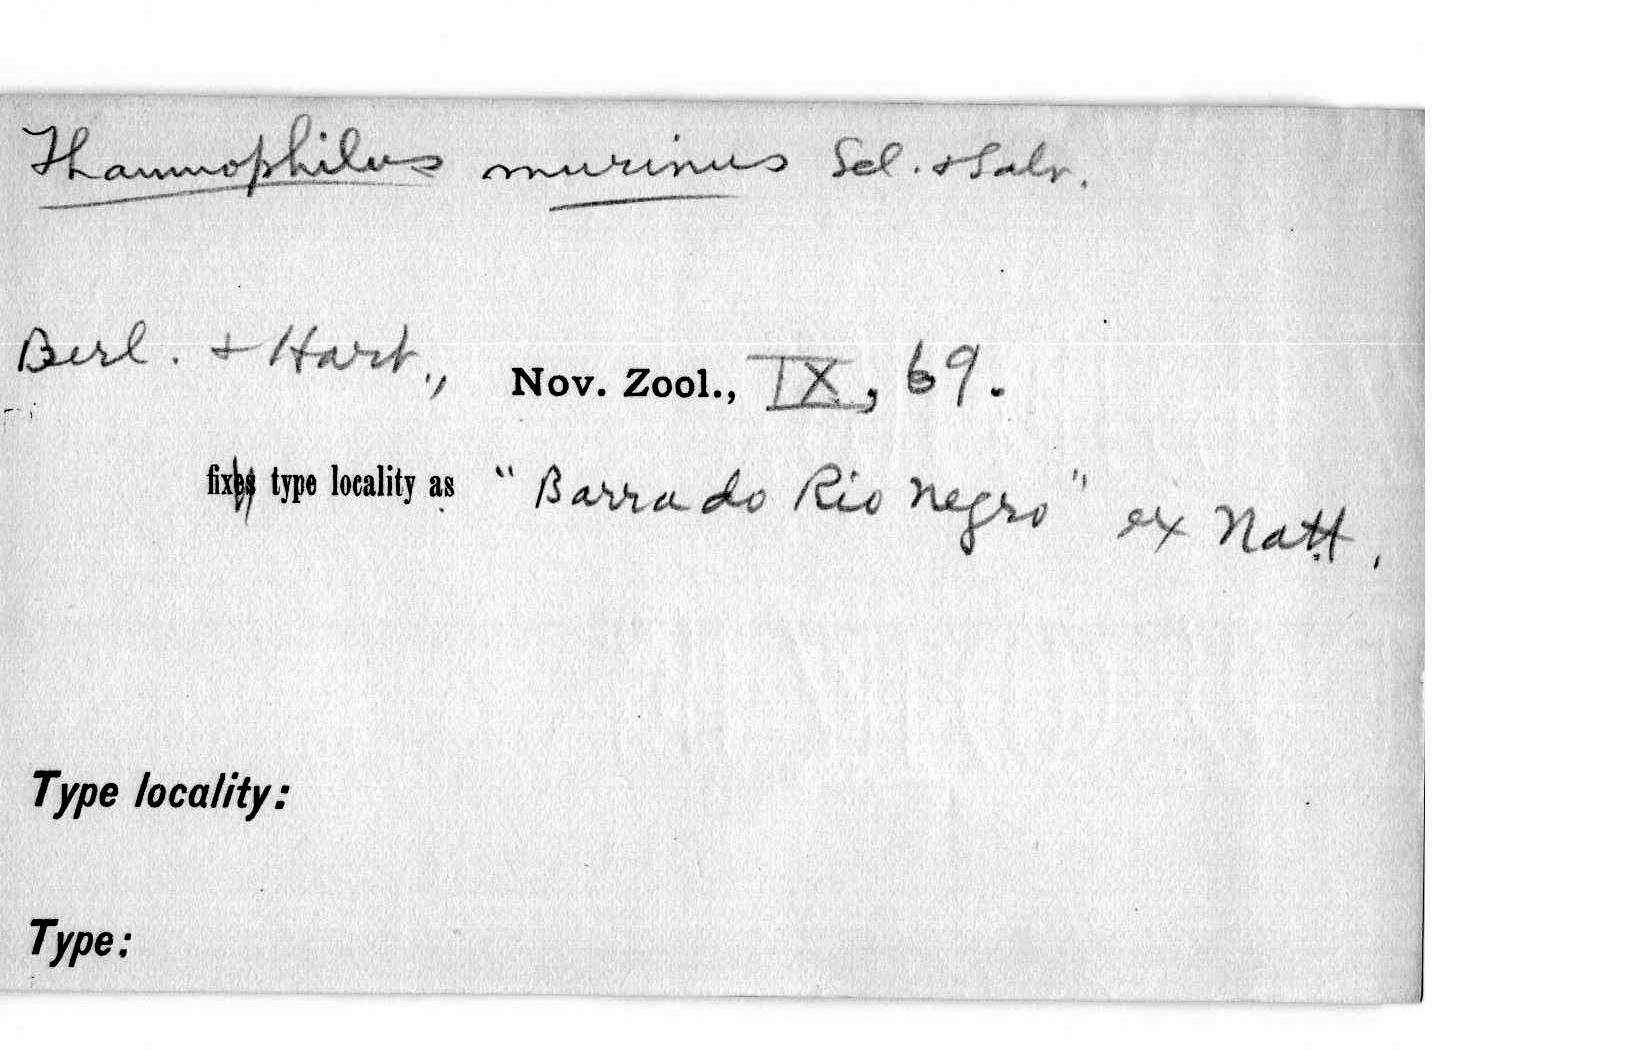 Thamnophilus murinus Scl. & Salv.
Berl. & Hart., Nov. Zool., IX, 69.
fix type locality as "Barra do Rio Negro" ex Natt.
Type locality:
Type: